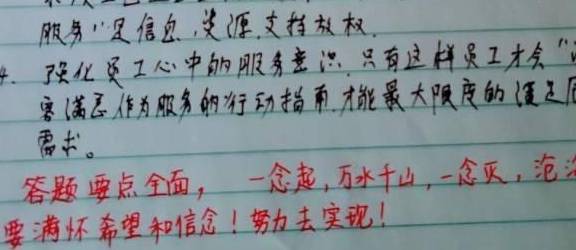 服务"足信息、资源、支持放权.
4. 强化员工心中的服务意识.只有这样员工才会"
客满意作为服务的行动指南.才能最大限度的满足
需求。
答题要点全面， 一念起，万水千山，一念灭，沧
要满怀希望和信念！努力去实现！